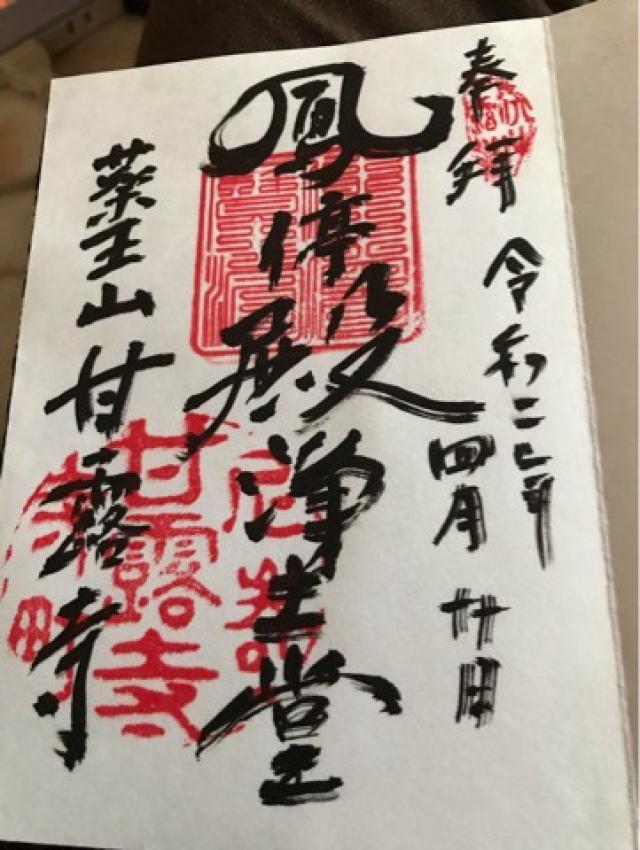 奉拝
令和二年
四月廿日
鳳停殿浄土堂
薬王山甘露寺
甘露寺